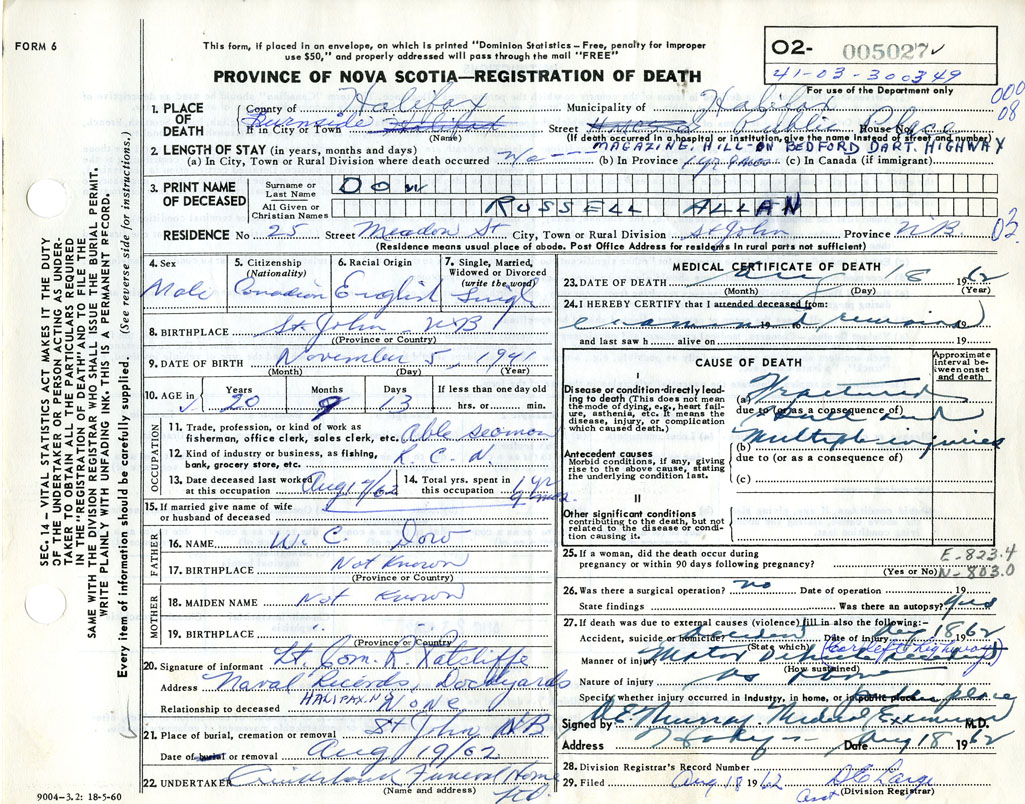 FORM 6
This form, if placed in an envelope, on which is printed "Dominion Statistics – Free, penalty for improper
use $50," and properly addressed will pass through the mail "FREE"
PROVINCE OF NOVA SCOTIA—REGISTRATION OF DEATH
02- 005027
41-03-300349
For use of the Department only
000
08
1. PLACE OF DEATH
County of Halifax Municipality of Halifax
If in City or Town Burnside Halifax (Name) Street Public Place House No.
(If death occurred in a hospital or institution, give the name instead of street and number)
MAGAZINE HILL - ON BEDFORD DART. HIGHWAY
2. LENGTH OF STAY (in years, months and days)
(a) In City, Town or Rural Division where death occurred (b) In Province 1 yr 9 mos (c) In Canada (if immigrant)
3. PRINT NAME OF DECEASED
Surname or Last Name DOW
All Given or Christian Names RUSSELL ALLAN
RESIDENCE No 25 Street Meadow St City, Town or Rural Division St John Province NB
03
(Residence means usual place of abode. Post Office Address for residents in rural parts not sufficient)
4. Sex Male
5. Citizenship (Nationality) Canadian
6. Racial Origin English
7. Single, Married, Widowed or Divorced (write the word) Singl
8. BIRTHPLACE St John - NB
(Province or Country)
9. DATE OF BIRTH November 5, 1941
(Month) (Day) (Year)
10. AGE in Years 20 Months 9 Days 13 If less than one day old hrs. or min.
OCCUPATION
11. Trade, profession, or kind of work as fisherman, office clerk, sales clerk, etc. Able seaman
12. Kind of industry or business, as fishing, bank, grocery store, etc. R.C.N.
13. Date deceased last worked at this occupation Aug 17/62 14. Total yrs. spent in this occupation 1 yr 9 mos.
15. If married give name of wife or husband of deceased
FATHER
16. NAME W. C. Dow
17. BIRTHPLACE Not Known
(Province or Country)
MOTHER
18. MAIDEN NAME Not Known
19. BIRTHPLACE " "
(Province or Country)
20. Signature of informant Lt. Com. R. Ratcliffe
Address Naval Records, Dockyards
HALIFAX N
Relationship to deceased None
21. Place of burial, cremation or removal St John NB
Date of burial or removal Aug 19/62
22. UNDERTAKER Funeral Home
Ltd.
(Name and address)
9004-3.2: 18-5-60
MEDICAL CERTIFICATE OF DEATH
23. DATE OF DEATH Aug 18 1962
(Month) (Day) (Year)
24. I HEREBY CERTIFY that I attended deceased from:
examined remains 19
and last saw h alive on 19
CAUSE OF DEATH
Approximate interval between onset and death
I
Disease or condition directly leading to death (This does not mean the mode of dying, e.g., heart failure, asthenia, etc. It means the disease, injury, or complication which caused death.)
(a) Fractured
due to (or as a consequence of)
(b) Multiple injuries
due to (or as a consequence of)
(c)
Antecedent causes
Morbid conditions, if any, giving rise to the above cause, stating the underlying condition last.
II
Other significant conditions contributing to the death, but not related to the disease or condition causing it.
25. If a woman, did the death occur during pregnancy or within 90 days following pregnancy?
(Yes or No)
E-823.4
N-803.0
26. Was there a surgical operation? no Date of operation 19
State findings Was there an autopsy? yes
27. If death was due to external causes (violence) fill in also the following:-
Accident, suicide or homicide? Accident Date of injury Aug 18 1962
(State which) (car left highway)
Manner of injury Motor Vehicle Accident
(How sustained)
Nature of injury as above
Specify whether injury occurred in Industry, in home, or in public place public place
Signed by D.E. Murray Medical Examiner M.D.
Address Halifax Date Aug 18 1962
28. Division Registrar's Record Number
29. Filed Aug 18 1962
Asst (Division Registrar)
SEC. 14 – VITAL STATISTICS ACT MAKES IT THE DUTY
OF THE UNDERTAKER OR PERSON ACTING AS UNDER-
TAKER TO OBTAIN ALL THE PARTICULARS REQUIRED
IN THE "REGISTRATION OF DEATH" AND TO FILE THE
SAME WITH THE DIVISION REGISTRAR WHO SHALL ISSUE THE BURIAL PERMIT.
WRITE PLAINLY WITH UNFADING INK. THIS IS A PERMANENT RECORD.
Every item of information should be carefully supplied. (See reverse side for instructions.)